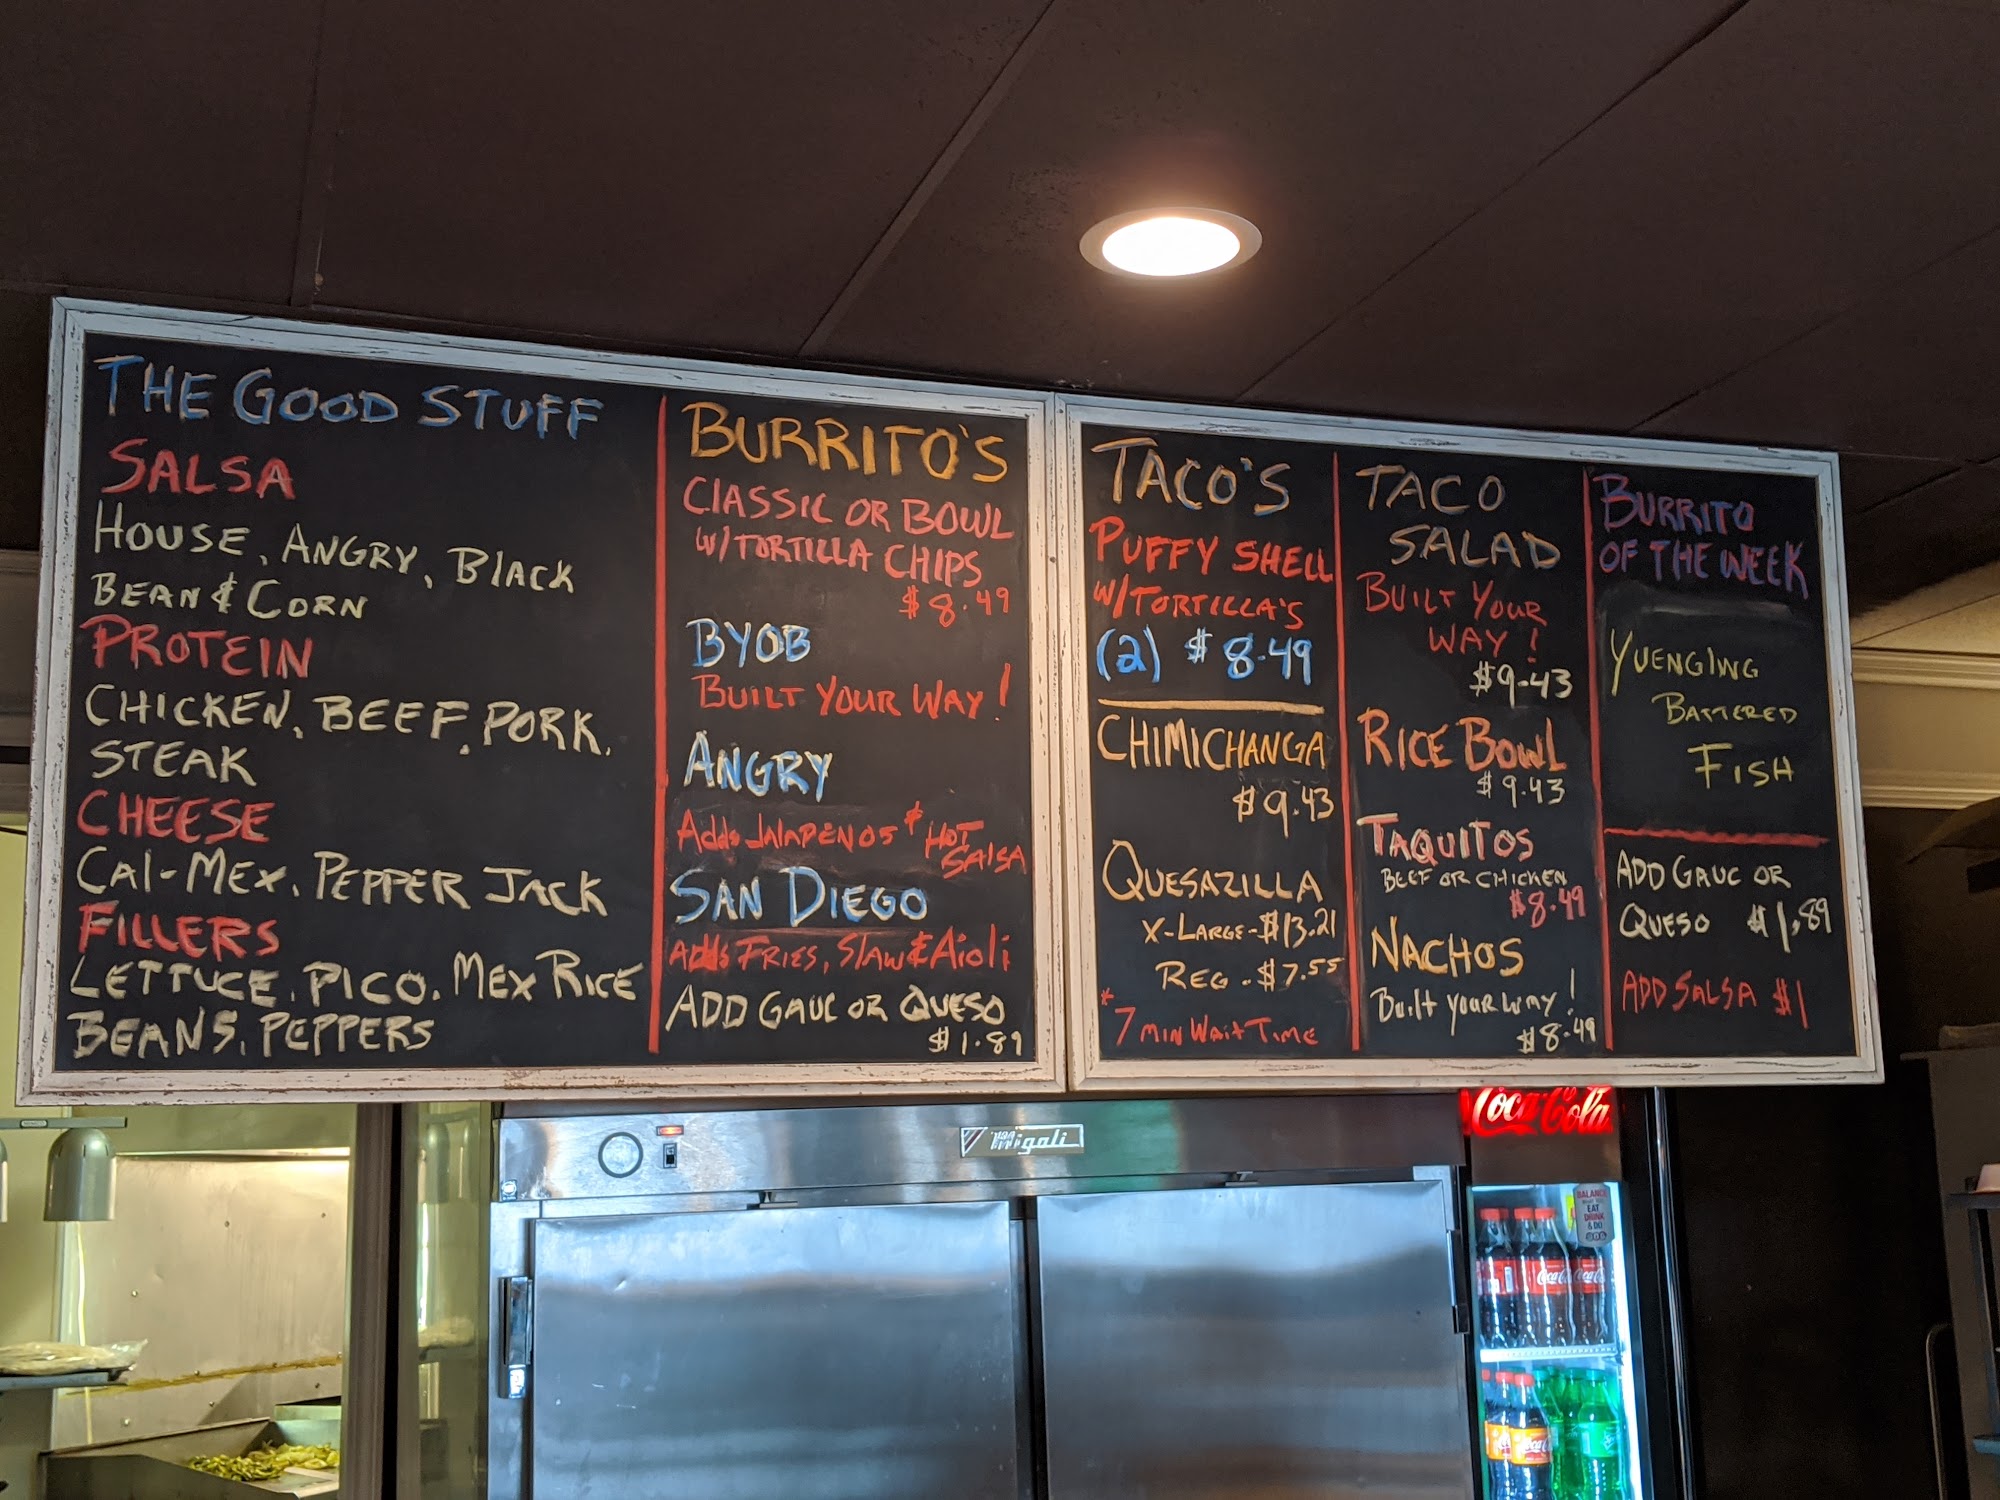 THE GOOD STUFF
SALSA
HOUSE, ANGRY, BLACK
BEAN & CORN
PROTEIN
CHICKEN, BEEF, PORK,
STEAK
CHEESE
CAL-MEX, PEPPER JACK
FILLERS
LETTUCE, PICO, MEX RICE
BEANS, PEPPERS
BURRITO'S
CLASSIC OR BOWL
W/TORTILLA CHIPS
$8.49
BYOB
BUILT YOUR WAY!
ANGRY
Adds JALAPENOS & HOT
SALSA
SAN DIEGO
Adds FRIES, Slaw & Aioli
ADD GAUC OR QUESO
$1.89
TACO'S
PUFFY SHELL
W/TORTILLA'S
(2) $8.49
CHIMICHANGA
$9.43
QUESAZILLA
X-LARGE-$13.21
REG. $7.55
*7 MIN WAIT TIME
TACO
SALAD
BUILT YOUR
WAY!
$9.43
RICE BOWL
$9.43
TAQUITOS
BEEF OR CHICKEN
$8.49
NACHOS
Built your way!
$8.49
BURRITO
OF THE WEEK
YUENGLING
BATTERED
FISH
ADD GAUC OR
QUESO $1.89
ADD SALSA $1
migali
Coca-Cola
BALANCE
WHAT YOU
EAT
DRINK
& DO